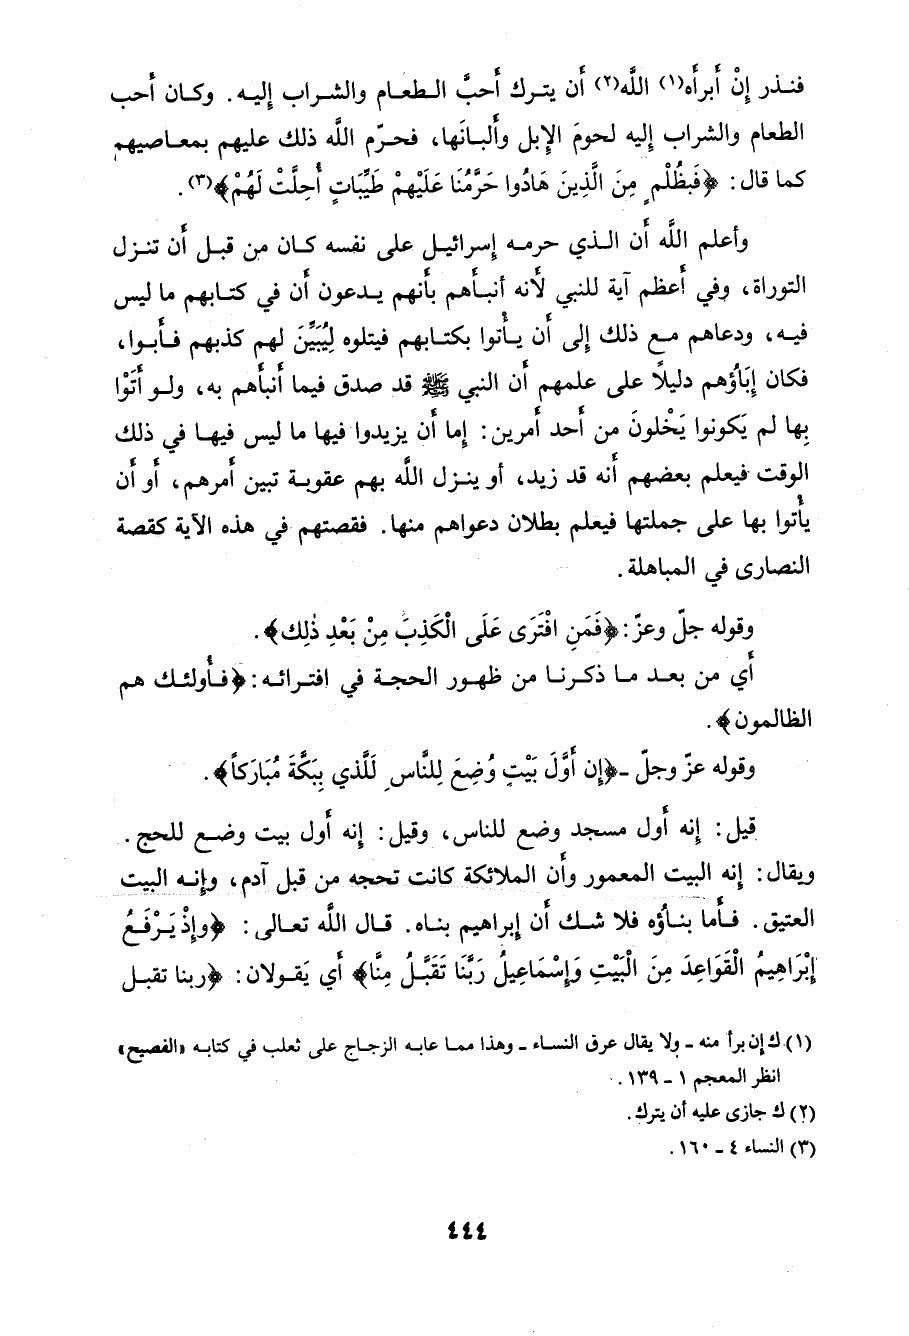 فنذر إِنْ أَبرأَه(١) اللَّه(٢) أَن يترك أَحبَّ الطعام والشراب إليه. وكان أَحب
الطعام والشراب إليه لحومَ الإبل وأَلبانَها، فحرّم اللَّه ذلك عليهم بمعاصيهم
كما قال: ﴿فَبِظُلْمٍ مِنَ الَّذِينَ هَادُوا حَرَّمْنَا عَلَيْهِمْ طَيِّبَاتٍ أُحِلَّتْ لَهُمْ﴾(٣).
وأَعلم اللَّه أَن الذي حرمه إسرائيل على نفسه كان من قبل أَن تنزل
التوراة، وفي أَعظم آية للنبي لأنه أنبأَهم بأَنهم يدعون أَن في كتابهم ما ليس
فيه، ودعاهم مع ذلك إلى أَن يأْتوا بكتابهم فيتلوه لِيُبَيِّنَ لهم كذبهم فأَبوا،
فكان إِبَاؤُهم دليلًا على علمهم أَن النبي ﷺ قد صدق فيما أَنبأَهم به، ولو أَتَوْا
بِها لم يَكونوا يَخْلونَ من أَحد أَمرين: إما أَن يزيدوا فيها ما ليس فيها في ذلك
الوقت فيعلم بعضهم أَنه قد زيد، أو ينزل اللَّه بهم عقوبة تبين أَمرهم، أَو أَن
يأْتوا بها على جملتها فيعلم بطلان دعواهم منها. فقصتهم في هذه الآية كقصة
النصارى في المباهلة.
وقوله جلّ وعزّ: ﴿فَمَنِ افْتَرَى عَلَى الْكَذِبَ مِنْ بَعْدِ ذٰلِك﴾.
أَي من بعد ما ذكرنا من ظهور الحجة في افترائه: ﴿فأُولئك هم
الظالمون﴾.
وقوله عزّ وجلّ -﴿إِن أَوَّلَ بَيْتٍ وُضِعَ لِلنَّاسِ لَلَّذي بِبَكَّةَ مُبَارَكاً﴾.
قيل: إنه أَول مسجد وضع للناس، وقيل: إنه أَول بيت وضع للحج.
ويقال: إنه البيت المعمور وأَن الملائكة كانت تحجه من قبل آدم، وإنه البيت
العتيق. فأَما بناؤه فلا شك أَن إبراهيم بناه. قال اللَّه تعالى: ﴿وإِذْ يَرْفَعُ
إِبْرَاهِيمُ الْقَوَاعِدَ مِنَ الْبَيْتِ وَإِسْمَاعِيلُ رَبَّنَا تَقَبَّلْ مِنَّا﴾ أَي يَقولان: ﴿ربنا تقبل
(١) ك إن برأ منه - ولا يقال عرق النساء - وهذا مما عابه الزجاج على ثعلب في كتابه «الفصيح»
انظر المعجم ١ - ١٣٩.
(٢) ك جازى عليه أن يترك.
(٣) النساء ٤ - ١٦٠.
٤٤٤